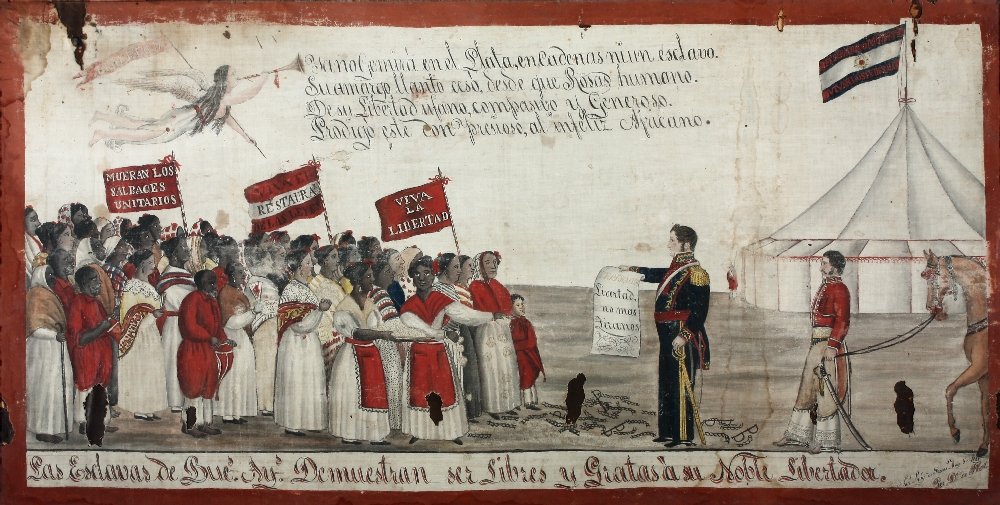 Ya no Gemirá en el Plata, en Cadenas ni un esclavo.
Su amargo llanto cesó, desde que Rosas humano.
De su Libertad ufano, compasivo y Generoso.
Prodigó este don precioso, al infeliz Africano.
MUERAN LOS
SALBAGES
UNITARIOS
RESTAURA
VIVA
LA
LIBERTAD
Livertad.
no mas
tiranos
Las Esclavas de Bueˢ Ayˢ Demuestran ser Libres y Gratas à su Noble Libertador.